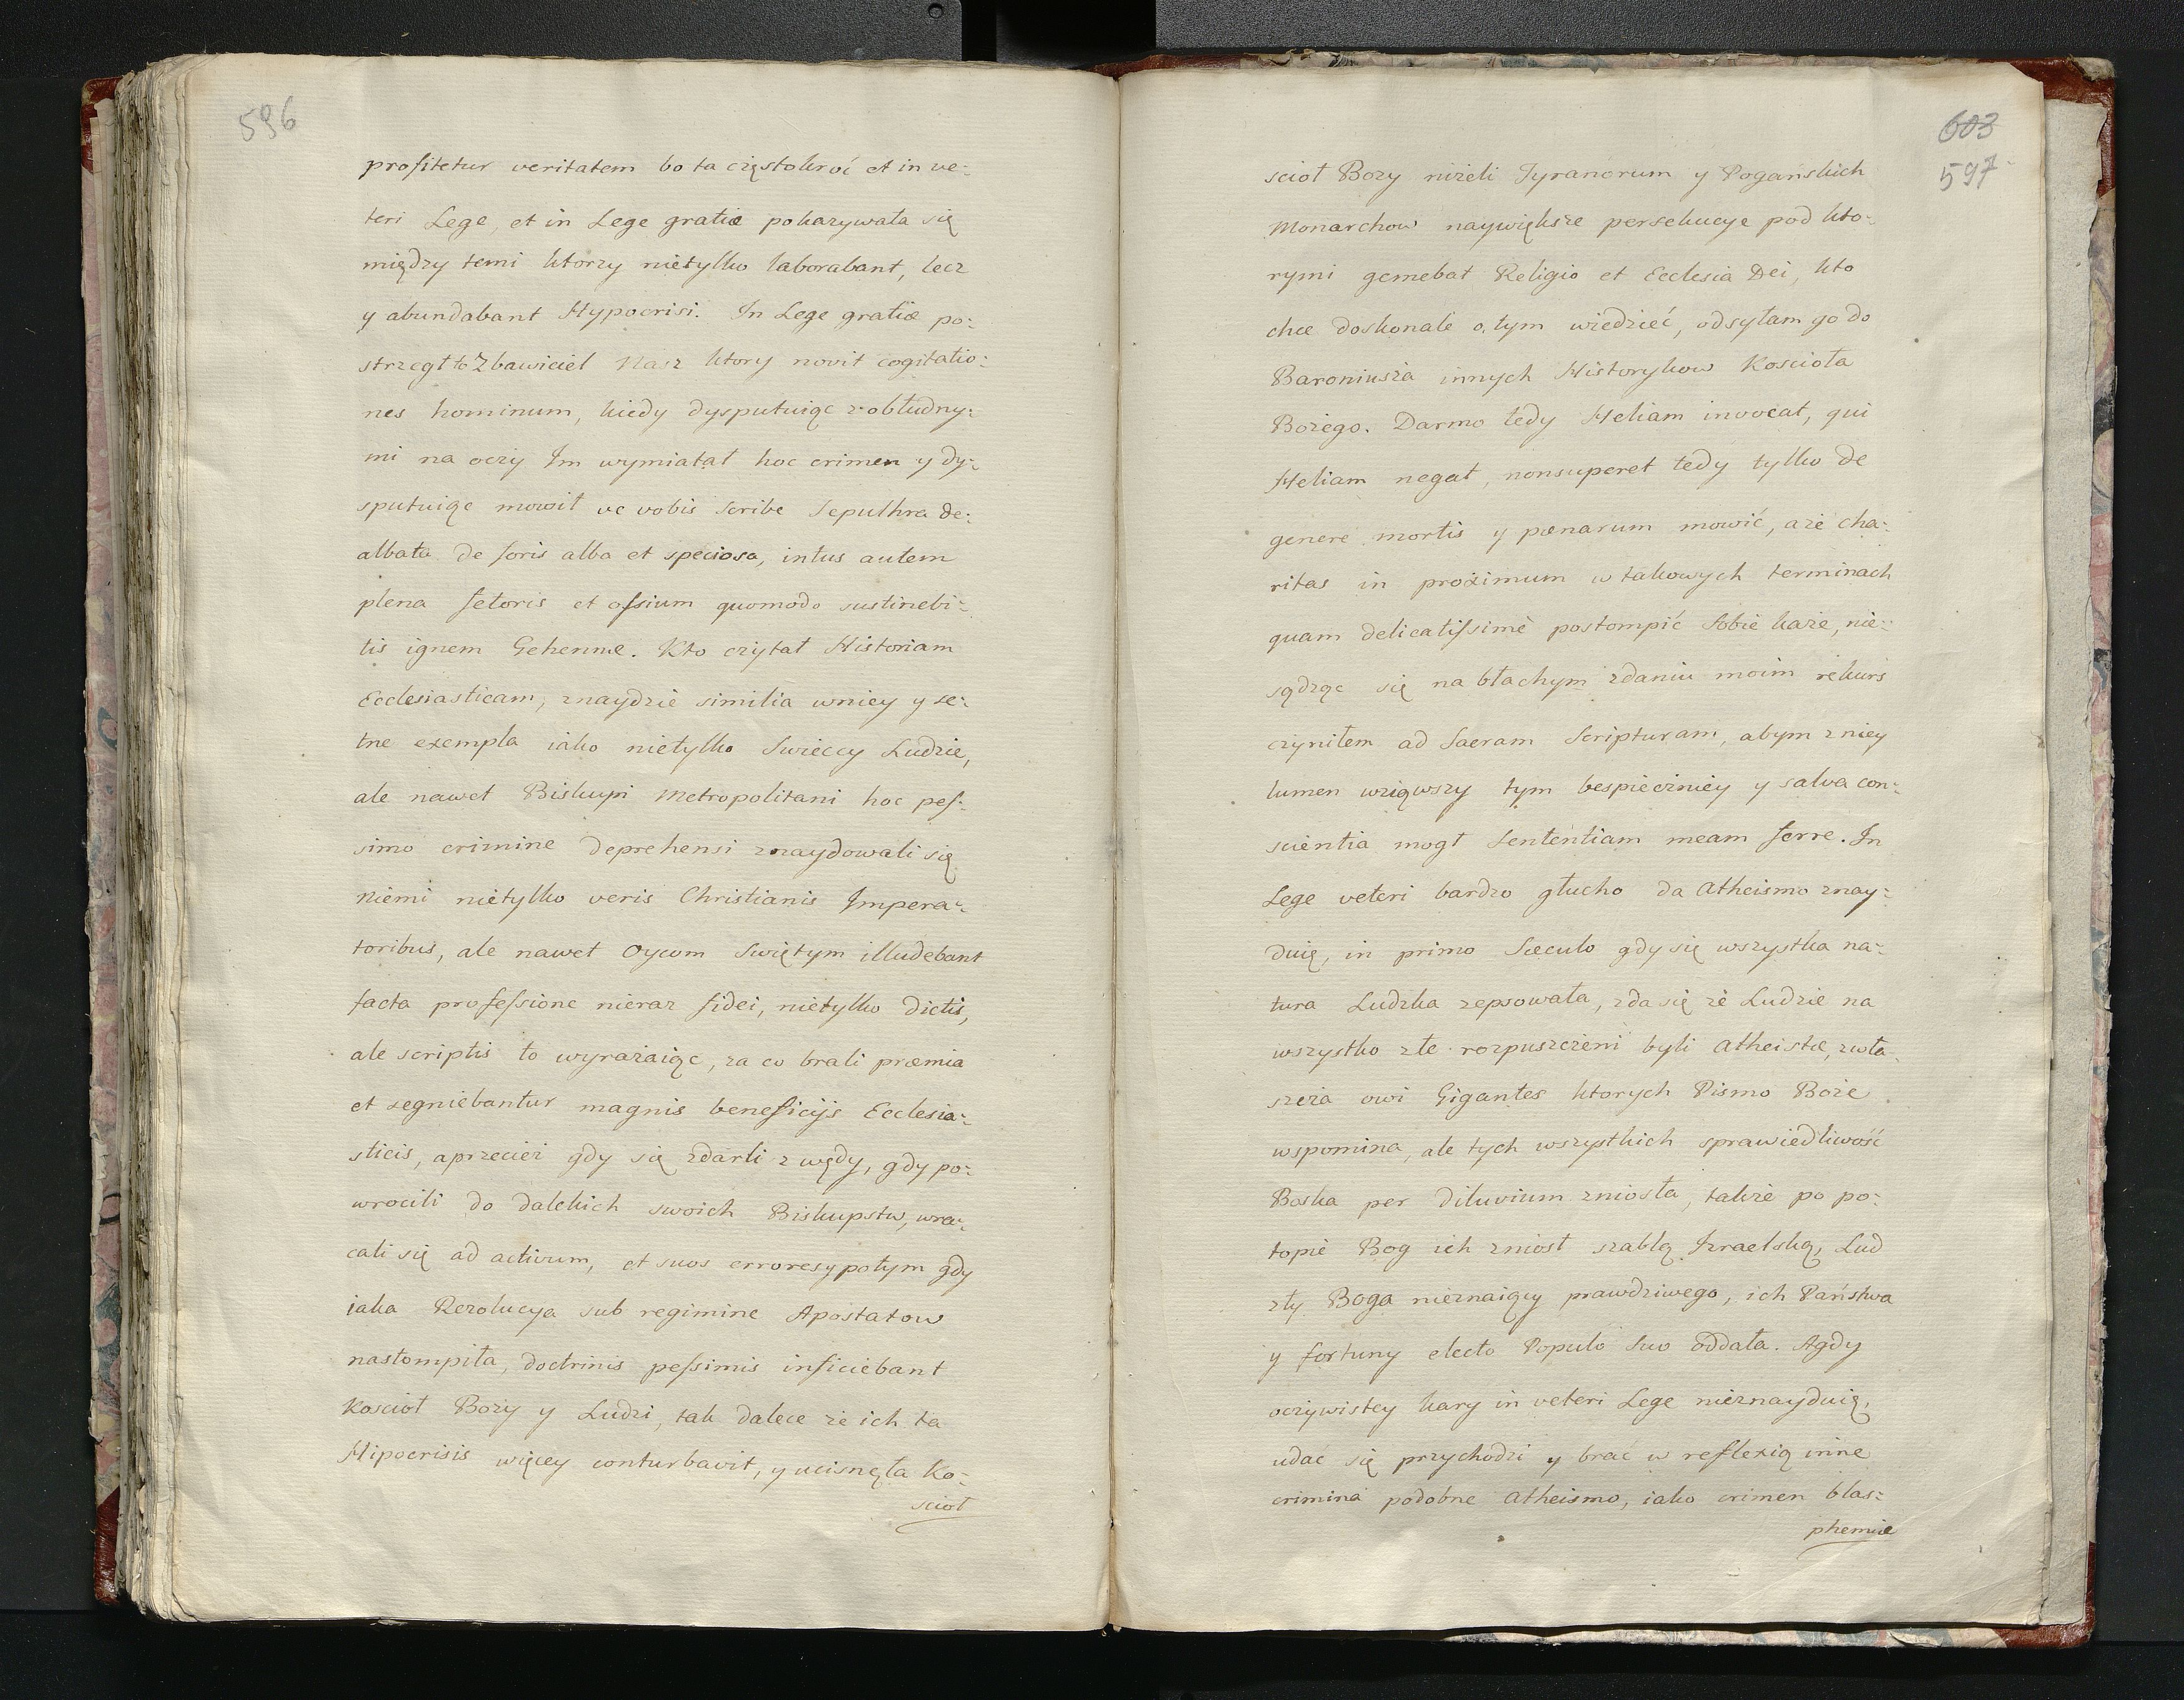 596
profitetur veritatem bo ta częstokroć et in ve-
teri Lege, et in Lege gratiæ pokazywała się
między temi ktorzy nietylko laborabant, lecz
y abundabant Hypocrisi. In Lege gratiæ po-
strzegł to Zbawiciel Nasz ktory novit cogitatio-
nes hominum, kiedy dysputuiąc z obłudny-
mi na oczy Im wymiatał hoc crimen y dy-
sputuiąc mowił ve vobis scribe Sepulhra de-
albata de foris alba et speciosa, intus autem
plena fetoris et ossium quomodo sustinebi-
tis ignem Gehennæ. Kto czytał Historiam
Ecclesiasticam, znaydzie similia w niey y se-
tne exempla iako nietylko Swieccy Ludzie,
ale nawet Biskupi Metropolitani hoc pes-
simo crimine deprehensi znaydowali się
Niemi nietylko veris Christianis Impera-
toribus, ale nawet Oycom Swiętym illudebant
facta professione nieraz fidei, nietylko dictis,
ale scriptis to wyrażaiąc, za co brali præmia
et segniebantur magnis beneficijs Ecclesia-
sticis, a przecież gdy się zdarli z wędy, gdy po-
wrocili do dalekich swoich Biskupstw, wra-
cali się ad activum, et suos errores y potym gdy
iaka Rezolucya sub regimine Apostatow
nastompiła, doctrinis pessimis inficiebant
Kosciot Bozy y Ludzi, tak dalece że ich ta
Hipocrisis więcey conturbavit, y ucisnęła Ko-
sciot
603
597
sciot Bozy niżeli Tyranorum y Pogańskich
Monarchow naywiększe persekucye pod kto-
rymi gemebat Religio et Ecclesia Dei, kto
chce doskonale o tym wiedzieć, odsyłam go do
Baroniusza innych Historykow Koscioła
Bożego. Darmo tedy Heliam invocat, qui
Heliam negat, nonsuperet tedy tylko de
genere mortis y pænarum mowić, aże cha-
ritas in proximum w takowych terminach
quam delicatissimè postompić sobie każe, nie-
sądząc się na błachym zdaniu moim rekurs
czyniłem ad Sacram Scripturam, abym z niey
lumen wziąwszy tym bespieczniey y salva con-
scientia mogł Sententiam meam ferre. In
Lege veteri bardzo głucho da Atheismo znay-
duię, in primo Sæculo gdy się wszystka na-
tura Ludzka zepsowała, zda się że Ludzie na
wszystko złe rozpuszczeni byli Atheistæ, zwła-
szcza owi Gigantes ktorych Pismo Boże
wspomina, ale tych wszystkich sprawiedliwość
Boska per diluvium zniosła, także po po-
topie Bog ich zniosł szablą Izraelską, Lud
zły Boga nieznaiący prawdziwego, ich Państwa
y fortuny electo Populo suo oddała. A gdy
oczywistey kary in veteri Lege nieznayduię,
udać się przychodzi y brać w reflexią inne
crimina podobne Atheismo, iako crimen blas-
phemiæ